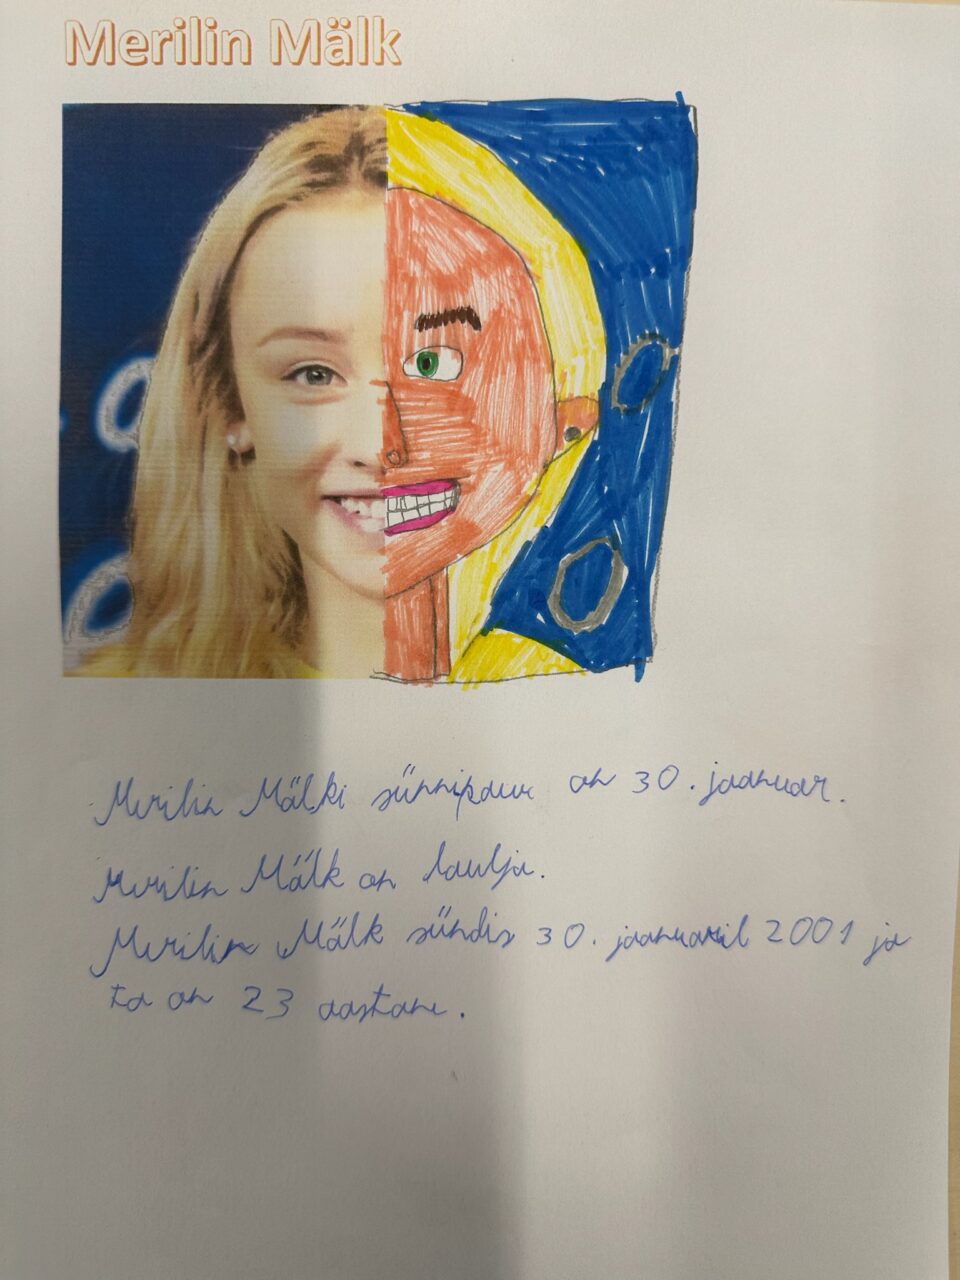 Merilin Mälk
Merilin Mälki sünnipäev on 30. jaanuar.
Merilin Mälk on laulja.
Merilin Mälk sündis 30. jaanuaril 2001 ja
ta on 23 aastane.